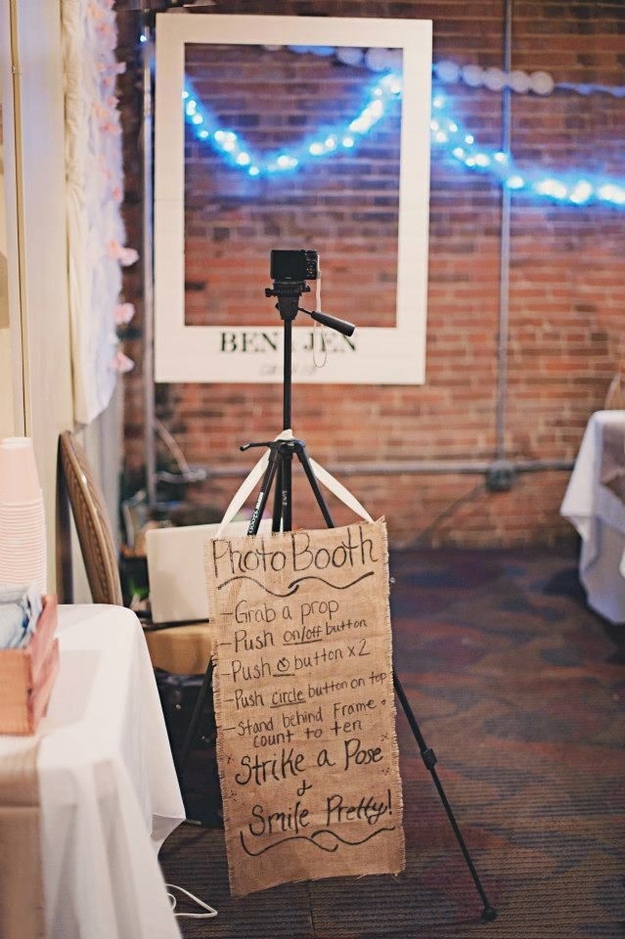 BEN & JEN
Photo Booth
-Grab a prop
-Push on/off button
-Push ⏱ button x2
-Push circle button on top
-Stand behind Frame +
count to ten
Strike a Pose
+
Smile Pretty!